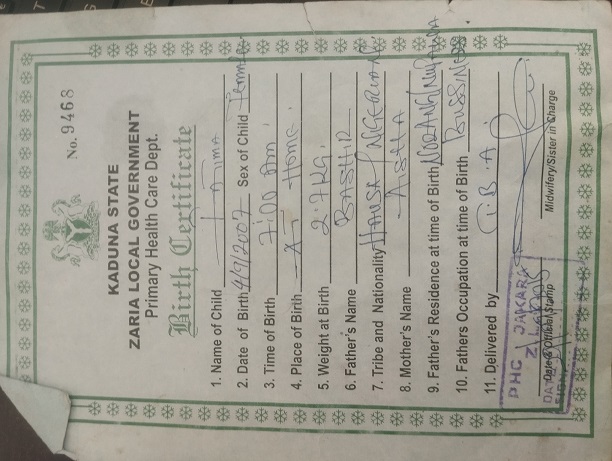 No. 9468
KADUNA STATE
ZARIA LOCAL GOVERNMENT
Primary Health Care Dept.
Birth Certificate
1. Name of Child FATIMA
2. Date of Birth 4/9/2007 Sex of Child Female
3. Time of Birth 7:00 Am.
4. Place of Birth At Home.
5. Weight at Birth 2.7kg.
6. Father's Name BASHIR
7. Tribe and Nationality HAUSA / NIGERIAN
8. Mother's Name AISHA
9. Father's Residence at time of Birth
10. Fathers Occupation at time of Birth BUSSINESS
11. Delivered by T.B.A.
PHC DAKARA
Date & Official Stamp
Midwifery/Sister in Charge